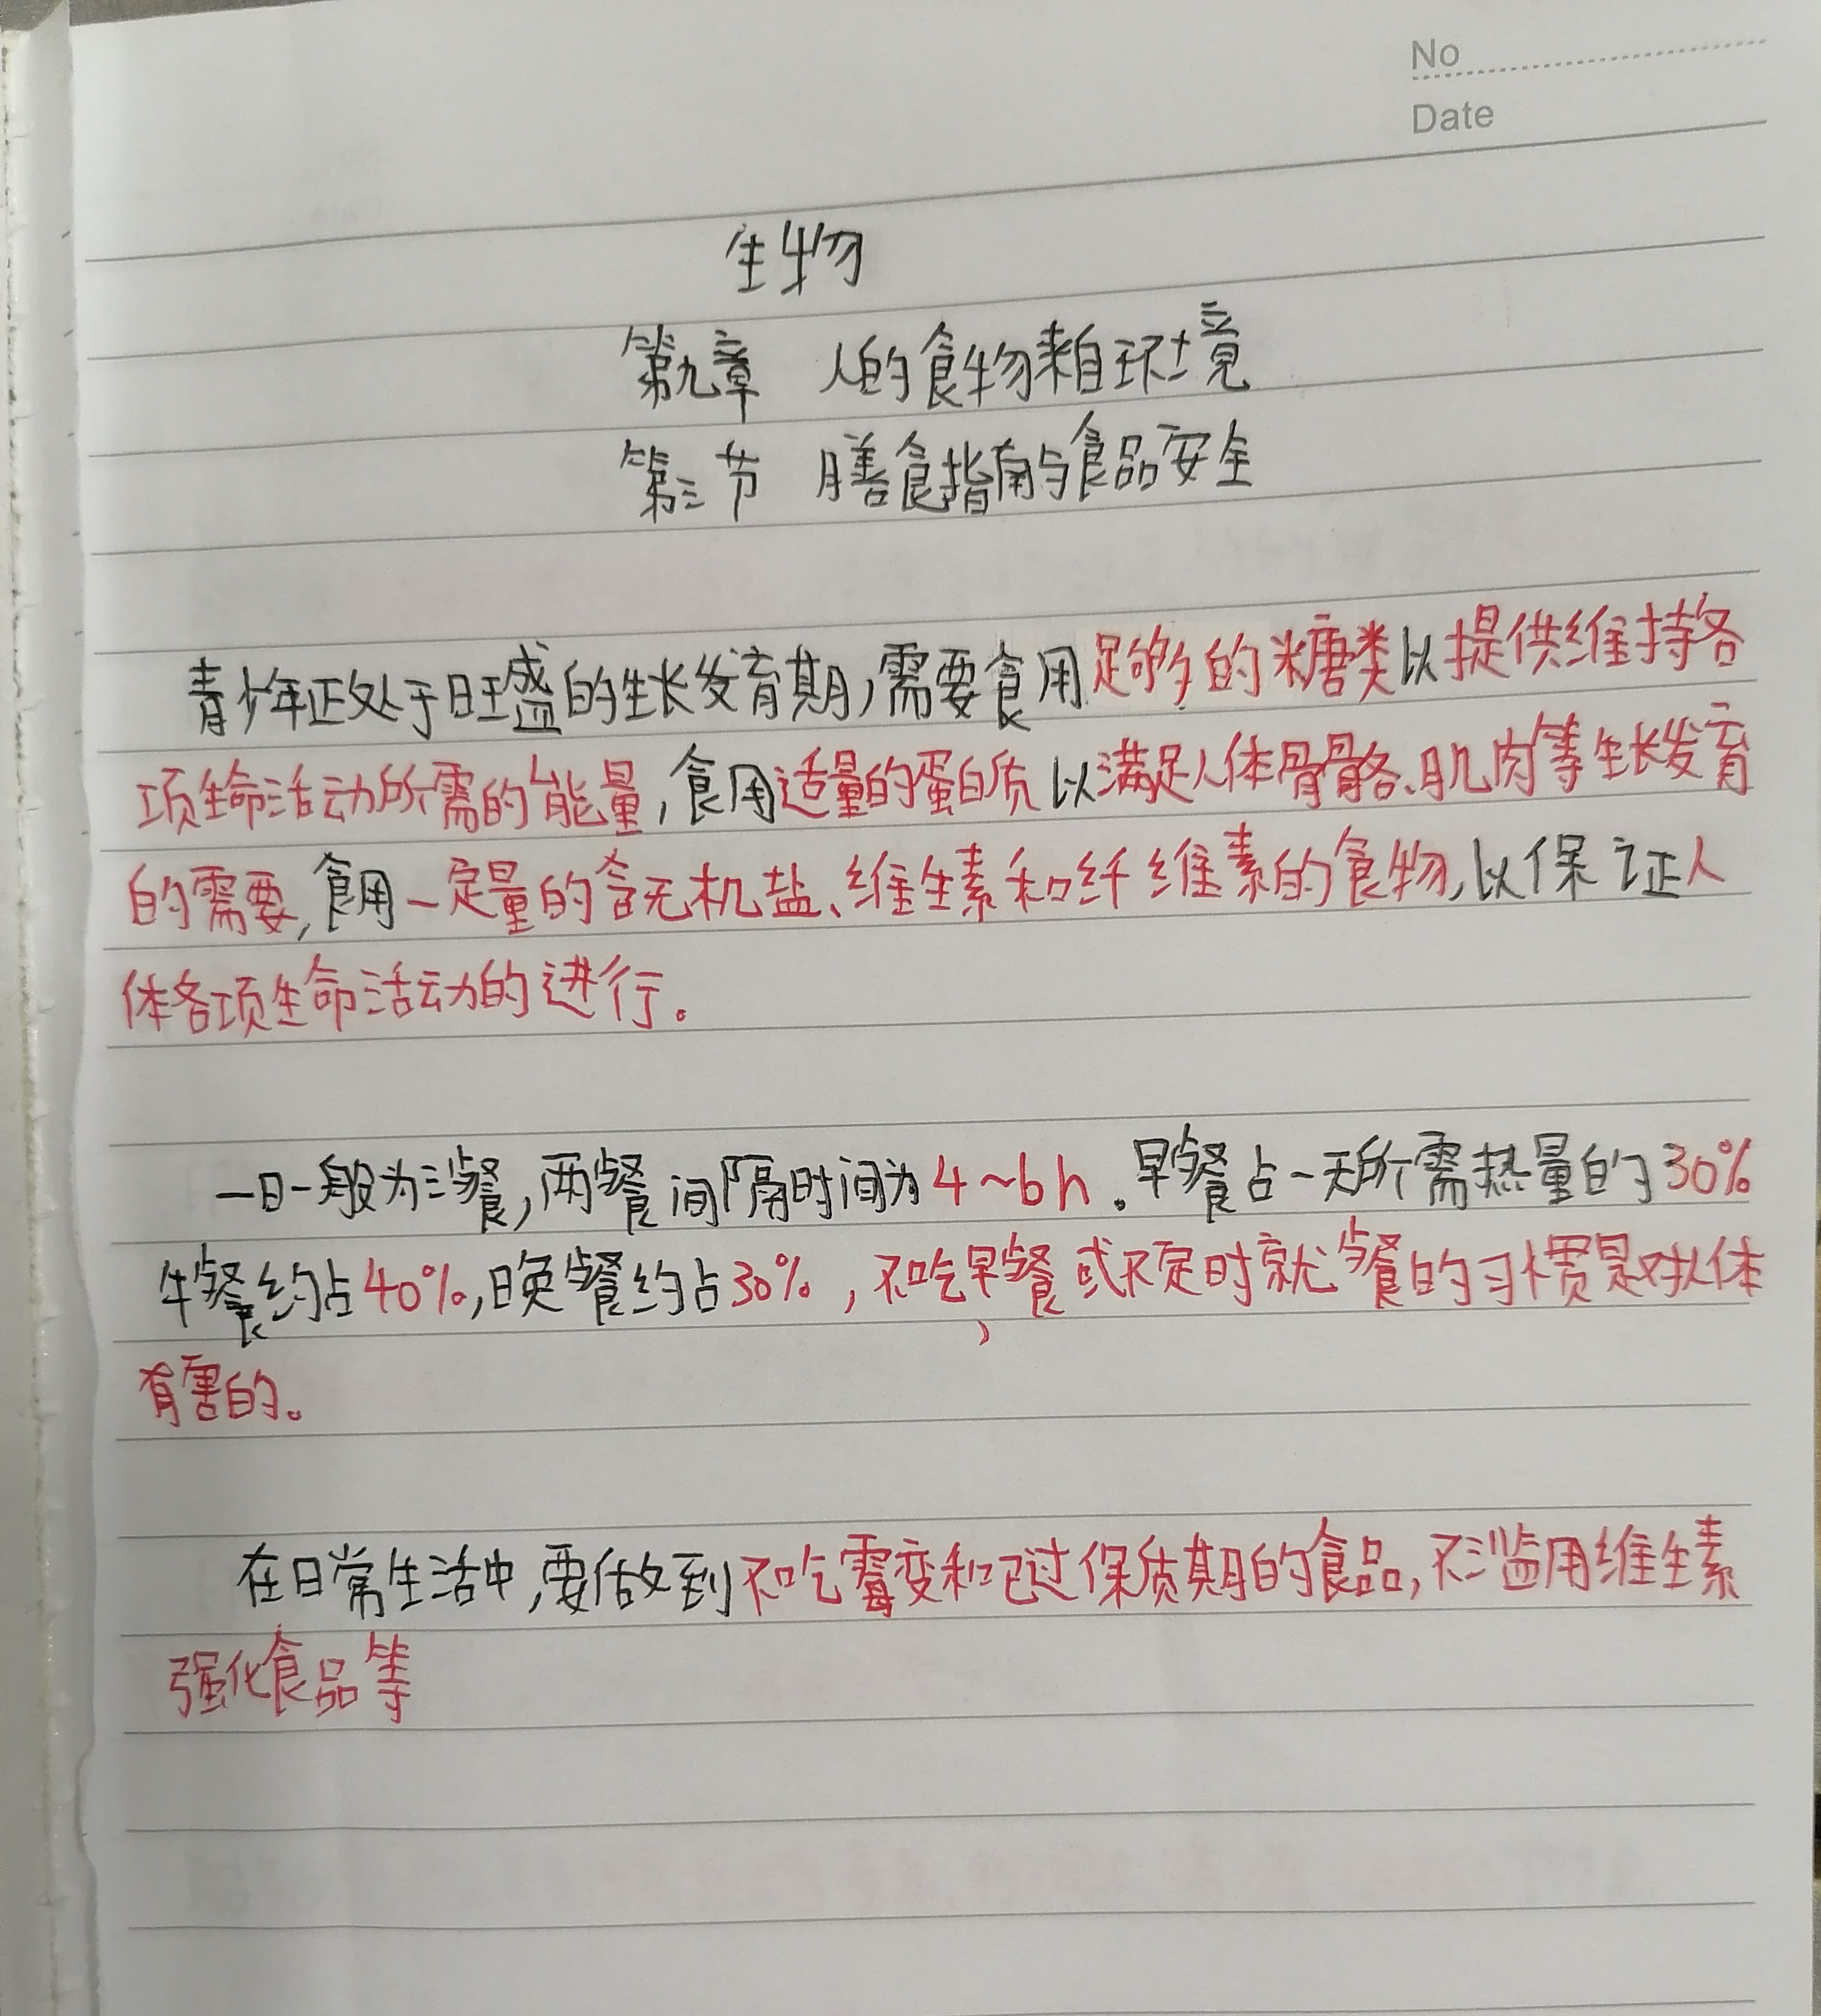 No
Date
生物
第九章 人的食物来自环境
第三节 膳食指南与食品安全
青少年正处于旺盛的生长发育期,需要食用足够的糖类以提供维持各
项生命活动所需的能量,食用适量的蛋白质以满足人体骨骼、肌肉等生长发育
的需要,食用一定量的含无机盐、维生素和纤维素的食物,以保证人
体各项生命活动的进行。
一日一般为三餐,两餐间隔时间为4~6h。早餐占一天所需热量的30%
午餐约占40%,晚餐约占30%,不吃早餐或不定时就餐的习惯是对人体
有害的。
在日常生活中,要做到不吃霉变和已过保质期的食品,不滥用维生素
强化食品等